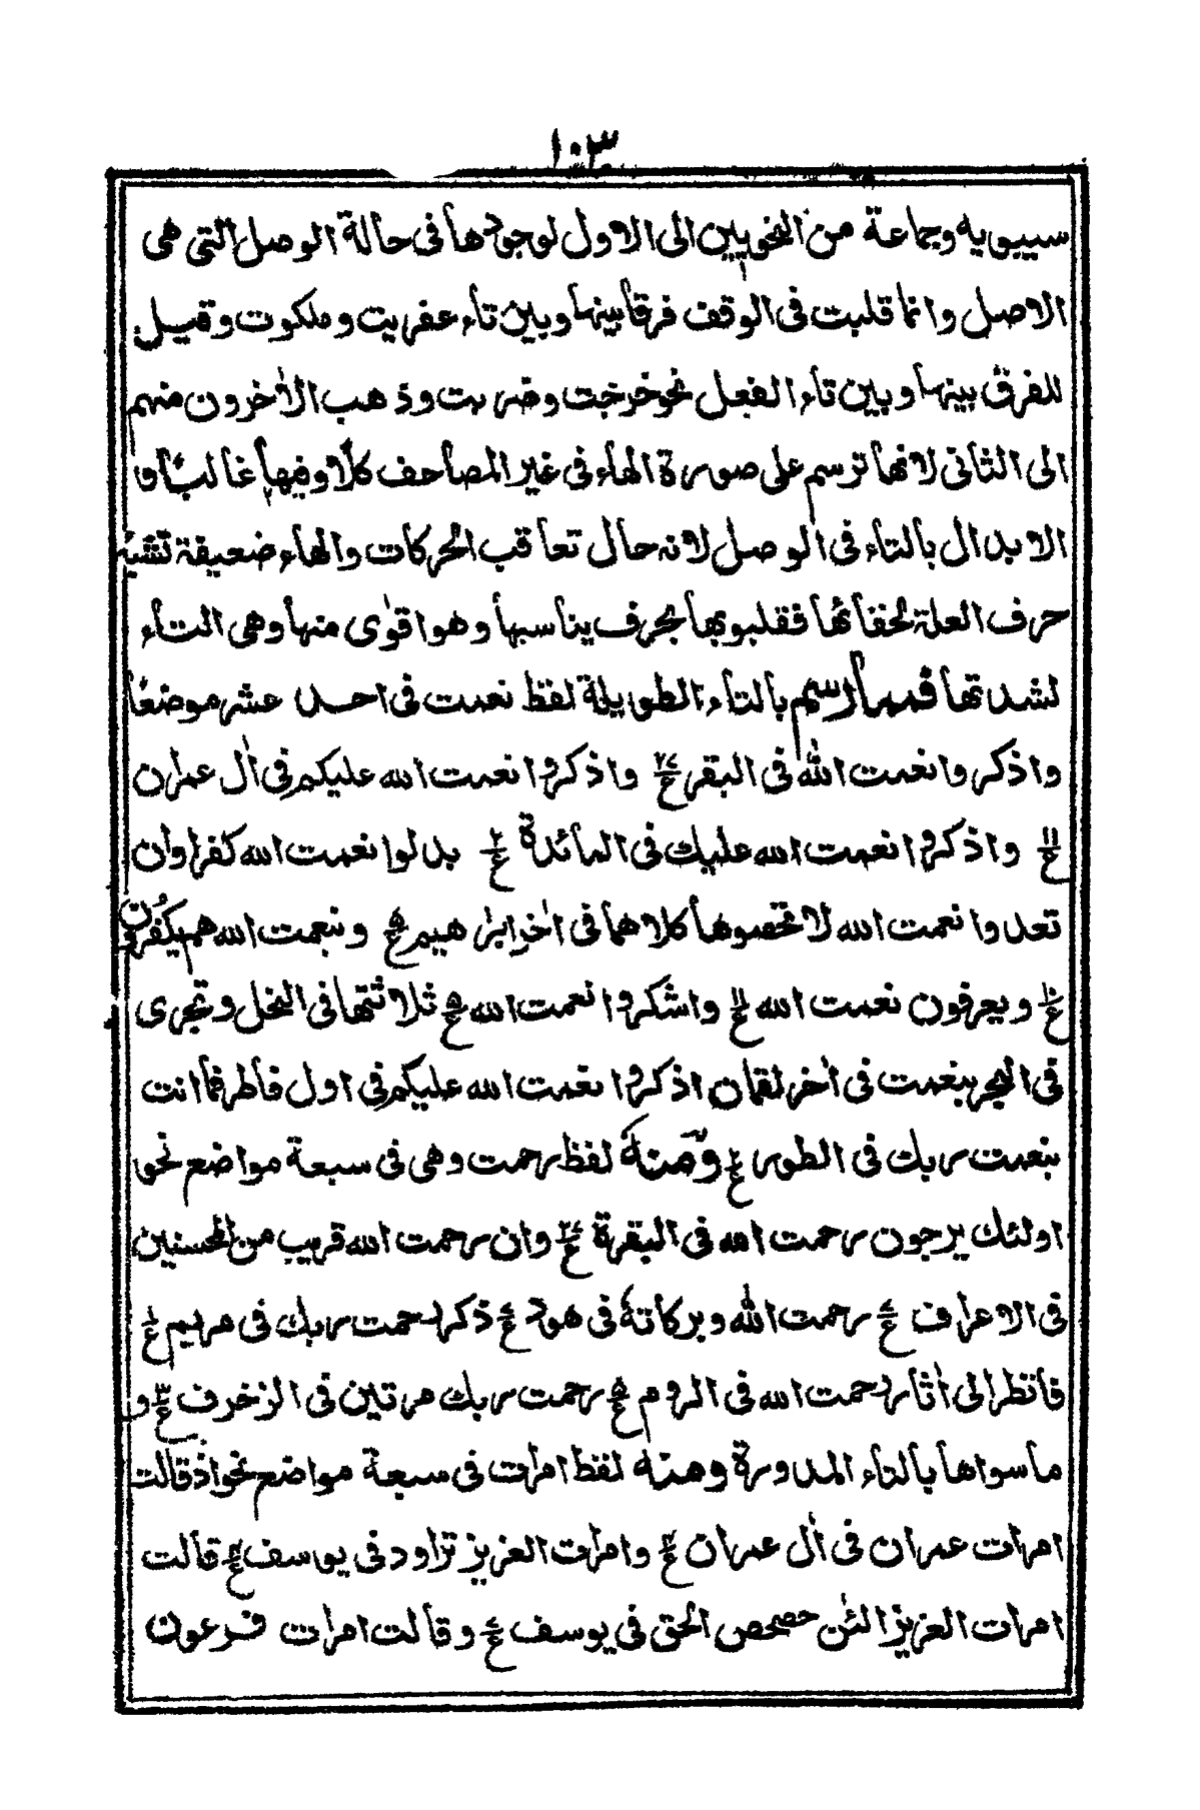 ١٠٣
سيبويه وجماعة من النحويين الى الاول لوجودها فى حالة الوصل التى هى
الاصل وانما قلبت فى الوقف فرقا بينها وبين تاء عفريت وملكوت وقيل
للفرق بينها وبين تاء الفعل نحو خرجت وضربت وذهب الاٰخرون منهم
الى الثانى لانها ترسم على صورة الهاء فى غير المصاحف كلّا وفيها غالباً و
الابدال بالتاء فى الوصل لانه حال تعاقب الحركات والهاء ضعيفة تشبه
حرف العلة لخفائها فقلبوها بحرف يناسبها وهو اقوٰى منها وهى التاء
لشدتها فمما رسم بالتاء الطويلة لفظ نعمت فى احد عشر موضعًا
واذكروا نعمت الله فى البقر واذكروا نعمت الله عليكم فى اٰل عمران
١١ع واذكروا نعمت الله عليك فى المائدة ٢ع بدلوا نعمت الله كفرا وان
تعدوا نعمت الله لا تحصوها كلاهما فى اٰخر ابراهيم ٥ع وبنعمت الله هم يكفرون
١٠ع ويعرفون نعمت الله ١١ع واشكروا نعمت الله ١٥ع ثلاثتها فى النحل وتجرى
فى البحر بنعمت فى اٰخر لقمان اذكروا نعمت الله عليكم فى اول فاطر فما انت
بنعمت ربك فى الطور ٢ع ومنه لفظ رحمت وهى فى سبعة مواضع نحو
اولئك يرجون رحمت الله فى البقرة ٢٧ع وان رحمت الله قريب من المحسنين
فى الاعراف ٧ع رحمت الله وبركاته فى هود ٧ع ذكر رحمت ربك فى مريم ١ع
فانظر الى اٰثار رحمت الله فى الروم ٥ع رحمت ربك مرتين فى الزخرف ٣ع و
ما سواها بالتاء المدورة ومنه لفظ امرات فى سبعة مواضع نحو اذ قالت
امرات عمران فى اٰل عمران ٤ع وامرات العزيز تراود فى يوسف قالت
امرات العزيز الئٰن حصحص الحق فى يوسف ٧ع وقالت امرات فرعون